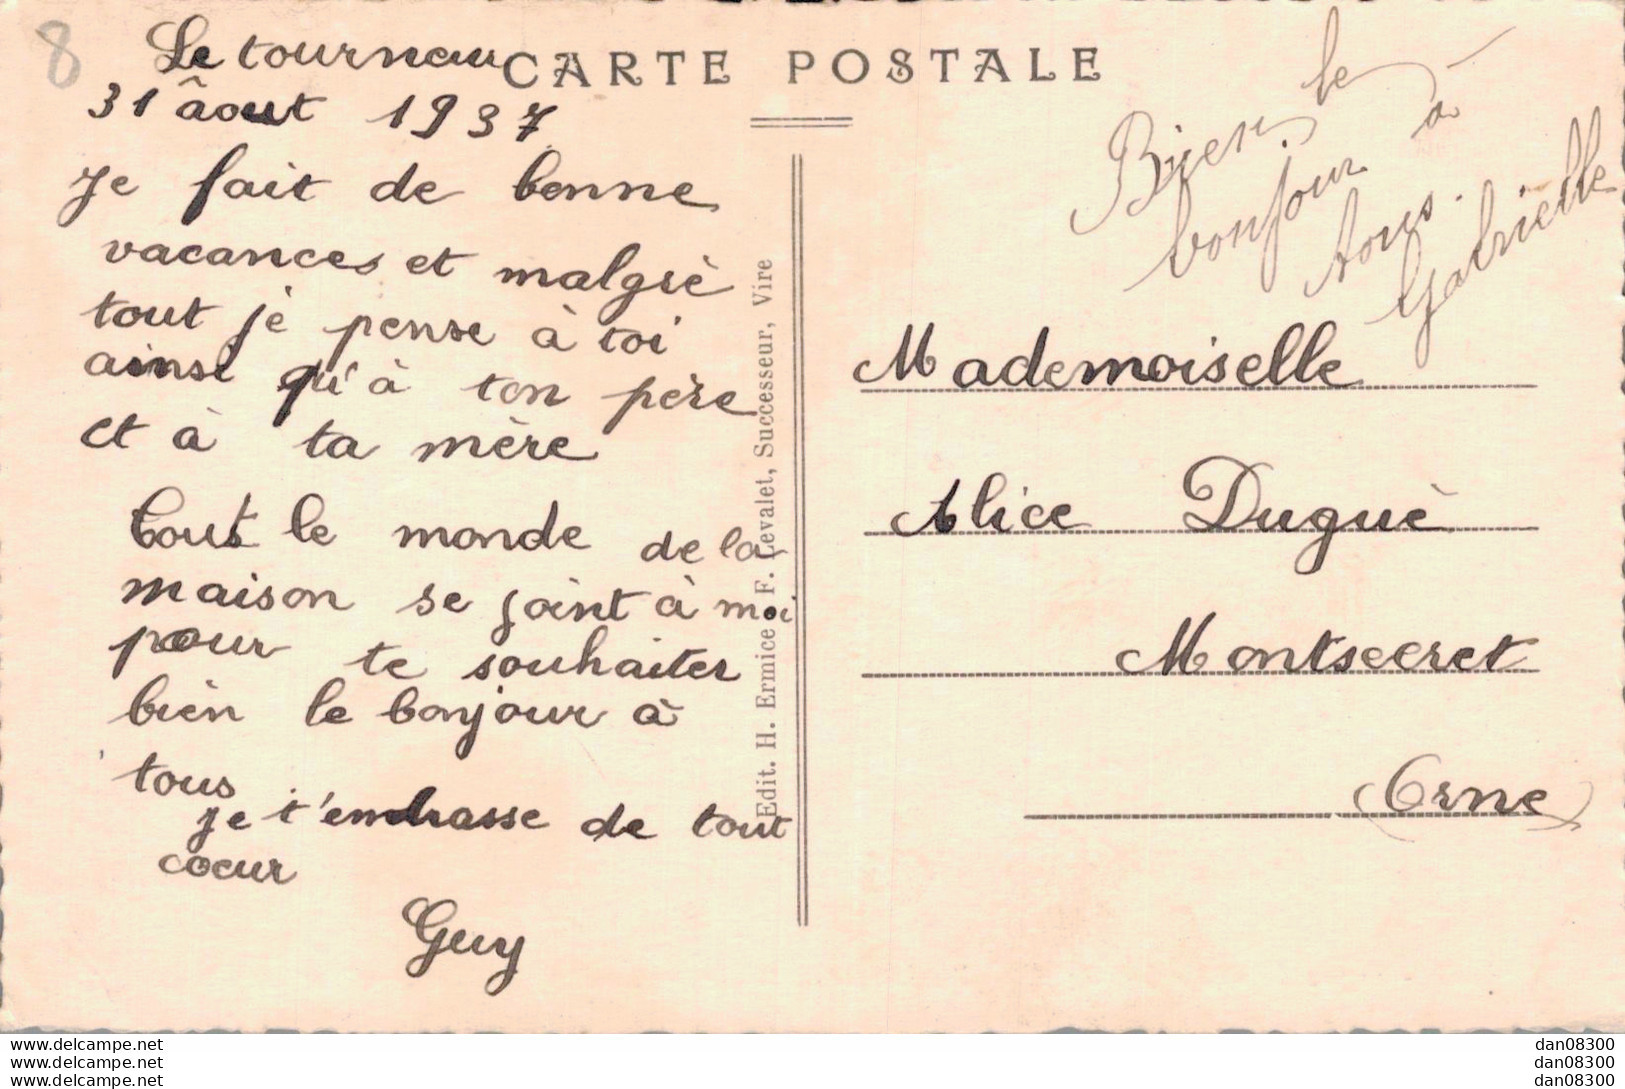 8
Le tourneur
31 âout 1937
je fait de bonne
vacances et malgrè
tout je pense à toi
ainsi qu'à ton père
et à ta mère
tout le monde de la
maison se joint à moi
pour te souhaiter
bien le bonjour à
tous
je t'embrasse de tout
coeur
Guy
CARTE POSTALE
Edit. H. Ermice - F. Levalet, Successeur, Vire
Bien le
bonjour à
tous.
Gabrielle
Mademoiselle
Alice Duguè
Montsecret
(Orne)
www.delcampe.net
www.delcampe.net
www.delcampe.net
dan08300
dan08300
dan08300